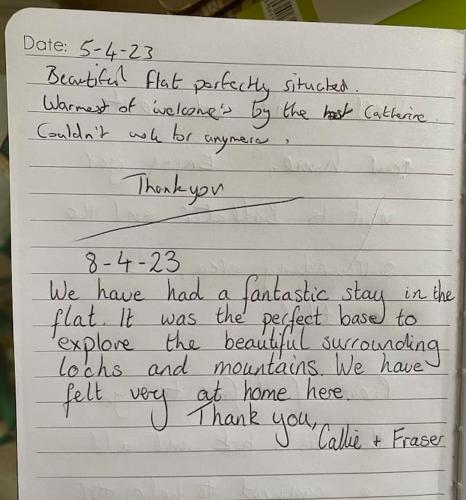 Date: 5-4-23
Beautiful flat perfectly situated.
Warmest of welcome's by the host Catherine.
Couldn't ask for anymore.
Thank you
8-4-23
We have had a fantastic stay in the
flat. It was the perfect base to
explore the beautiful surrounding
lochs and mountains. We have
felt very at home here.
Thank you,
Callie + Fraser